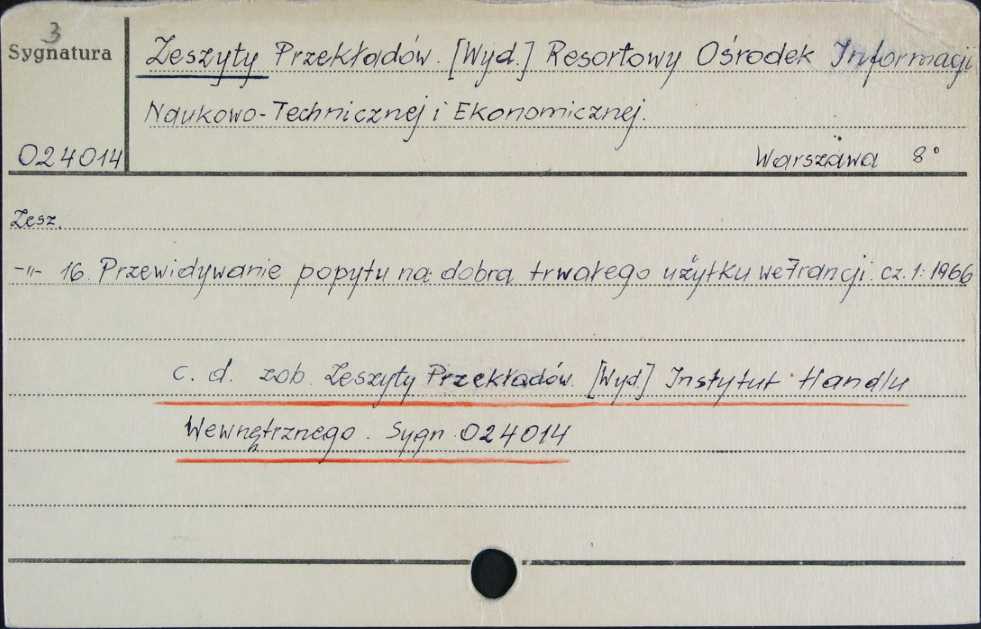 3
Sygnatura
Zeszyty Przekładów. [Wyd.] Resortowy Ośrodek Informacji
Naukowo-Technicznej i Ekonomicznej.
024014
Warszawa 8°
Zesz.
-"- 16. Przewidywanie popytu na dobra trwałego użytku we Francji. cz. 1: 1966
c. d. zob. Zeszyty Przekładów. [Wyd] Instytut Handlu
Wewnętrznego. Sygn. 024014